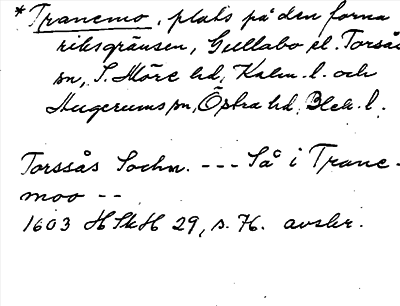 *Tranemo, plats på den forna
riksgränsen, Gullabo el. Torsås
sn, S. Möre hd, Kalm. l. och
Hugerums sn, Östra hd, Blek. l.
Torssås Sochn. --- Så i Trane-
moo --
1603 HSkH 29, s. 76. avskr.